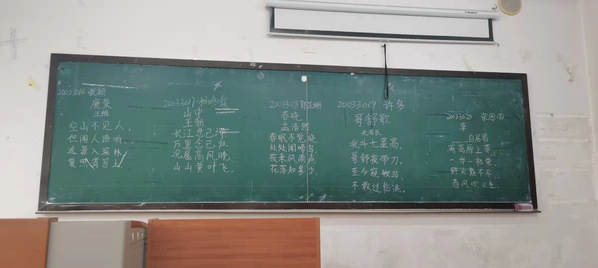 鹿柴
王维
空山不见人，
但闻人语响。
返景入深林，
复照青苔上。
山中
王勃
长江悲已滞，
万里念将归。
况属高风晚，
山山黄叶飞。
春晓
孟浩然
春眠不觉晓
处处闻啼鸟
夜来风雨声
花落知多少
20033019 许多
哥舒歌
北斗七星高，
哥舒夜带刀。
至今窥牧马，
不敢过临洮。
草
白居易
离离原上草，
一岁一枯荣
野火烧不尽
春风吹又生